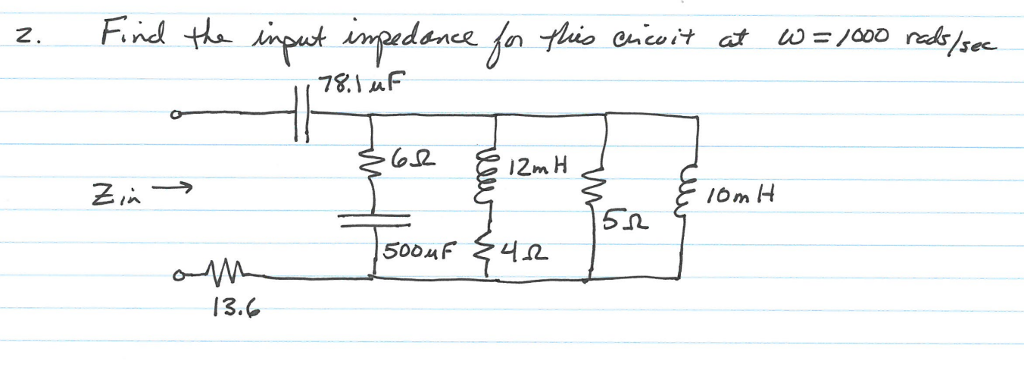 2. Find the input impedance for this circuit at ω = 1000 rads/sec
78.1 uF
6Ω
12mH
Zin →
5Ω
10mH
500uF
4Ω
13.6